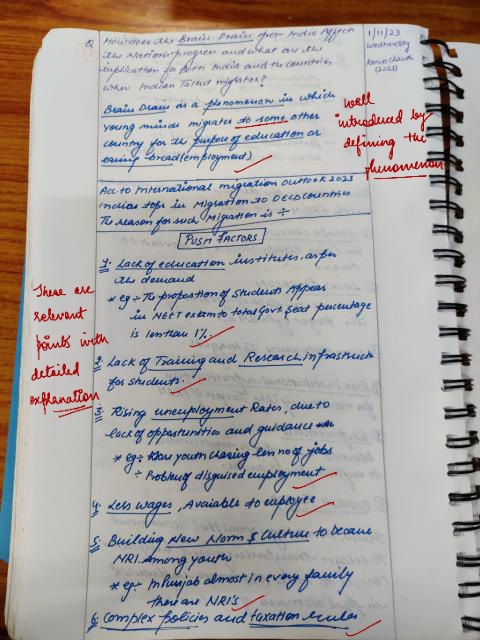 Q How does the Brain Drain from India Affect
the Nation progress and what are the
implication for both India and the countries
when Indian Talent migrates?
1/11/23
Wednesday
Karwachauth
(2023)
Brain Drain is a phenomenon in which
young minds migrates to some other
country for the purpose of education or
earning bread (employment)
Well
introduced by
defining the
phenomenon
Acc. to International migration outlook 2023
India tops in Migration to OECD Countries
The reason for such Migration is ÷
PUSH FACTORS
1. Lack of education institutes, as per
the demand
* eg ÷ The proportion of students Appear
in NEET exam to total Govt Seat percentage
is less than 1%.
There are
relevant
points with
detailed
explanation
2. Lack of Training and Research infrastruct
for students.
3. Rising unemployment Rates, due to
lack of opportunities and guidance
* eg ÷ More youth chasing less no of jobs
÷ Problem of disguised employment
4. Less wages, Avaiable to employee
5. Building New Norm & Culture to became
NRI. Among youth
* eg ÷ In Punjab almost in every family
there are NRI's
6. Complex policies and taxation rules